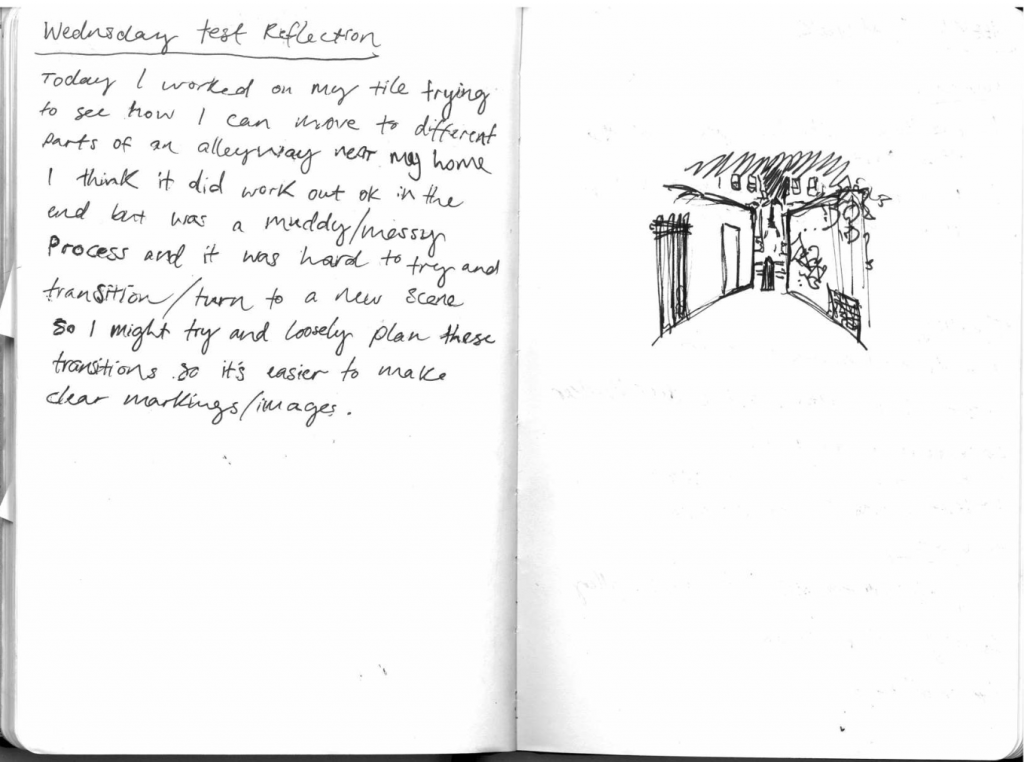 Wednesday test Reflection
Today I worked on my tile trying
to see how I can move to different
parts of an alleyway near my home
I think it did work out ok in the
end but was a muddy/messy
process and it was hard to try and
transition/turn to a new scene
so I might try and loosely plan these
transitions so it's easier to make
clear markings/images.